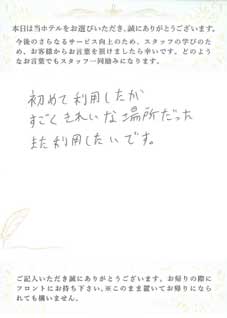 本日は当ホテルをお選びいただき、誠にありがとうございます。
今後のさらなるサービス向上のため、スタッフの学びのた
め、お客様からお言葉を頂けましたら幸いです。どのよう
なお言葉でもスタッフ一同励みになります。
初めて利用したが
すごくきれいな場所だった
また利用したいです。
ご記入いただき誠にありがとうございます。お帰りの際に
フロントにお持ち下さい。※このまま置いてお帰りになら
れても構いません。